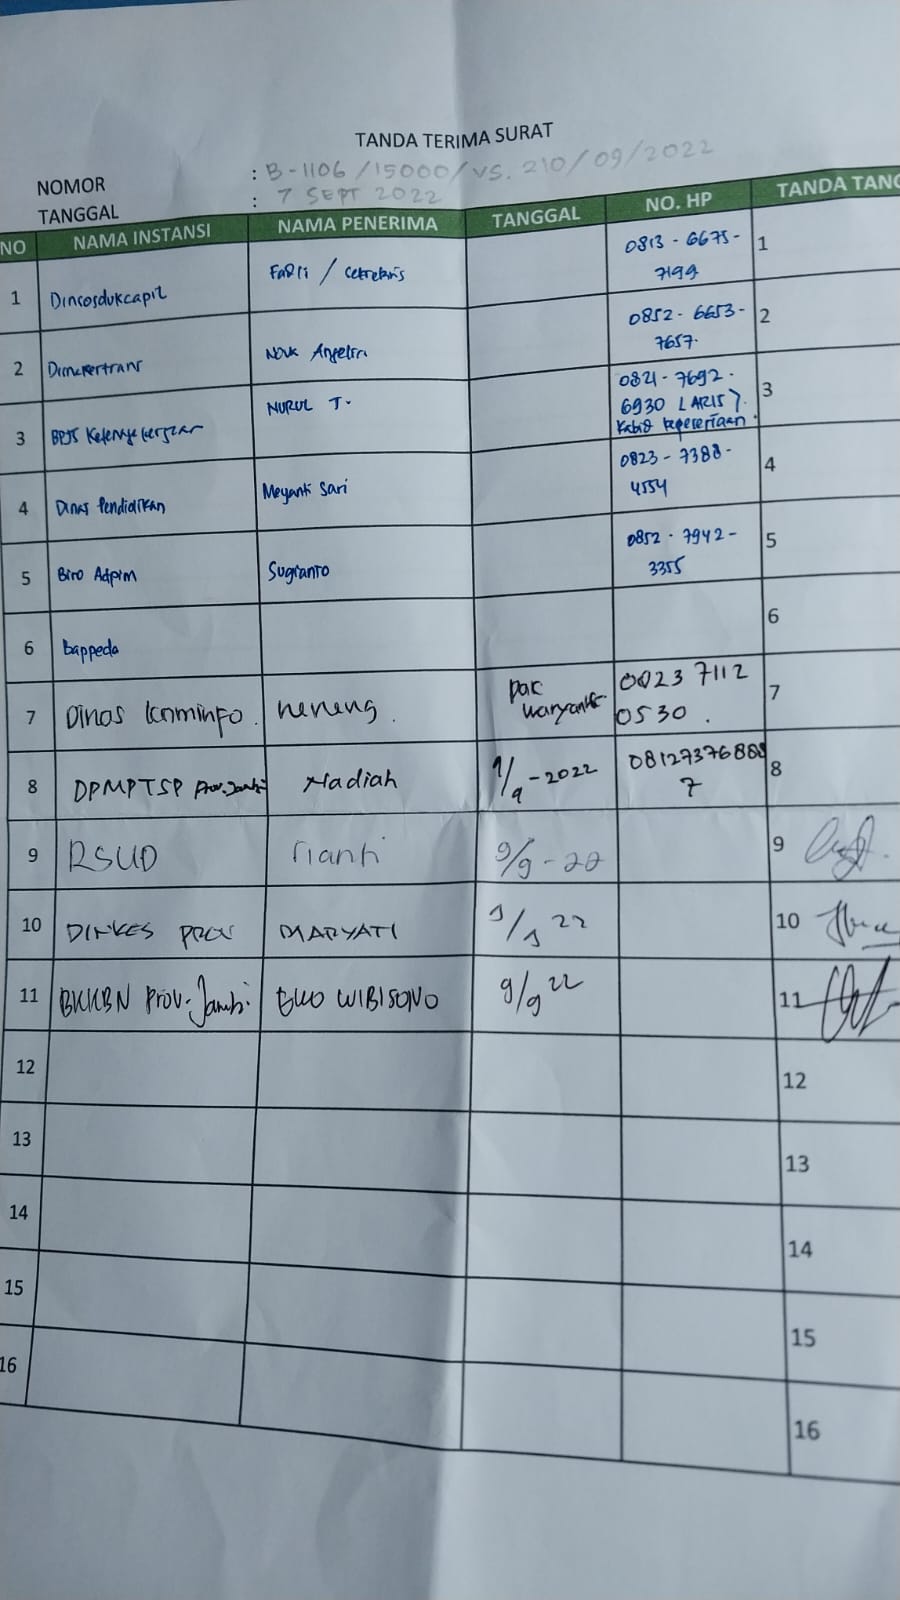 TANDA TERIMA SURAT
NOMOR : B-1106/15000/VS.210/09/2022
TANGGAL : 7 SEPT 2022
NO NAMA INSTANSI NAMA PENERIMA TANGGAL NO. HP TANDA TANG
1 Dinsosdukcapil Fadli / Sekretaris 0813-6675- 1
7199
2 Disnakertrans Novi Angelia 0852-6653- 2
7657.
3 BPJS Ketenagakerjaan NURUL J. 0821-7692- 3
6930 (ARIS).
Kabid kepesertaan.
4 Dinas Pendidikan Meyanti Sari 0823-7388- 4
4554
5 Biro Adpim Sugianto 0852-7942- 5
3355
6 Bappeda 6
7 Dinas Kominfo. neneng. pak 7
0530.
8 DPMPTSP Prov. Jambi Nadiah 9/9-2022 8
7
9 RSUD rianti 9/9-22 9
10 DINKES PROV MARYATI 9/9 22 10
11 BKKBN Prov. Jambi. EKO WIBISONO 9/9 22 11
12 12
13 13
14 14
15 15
16 16